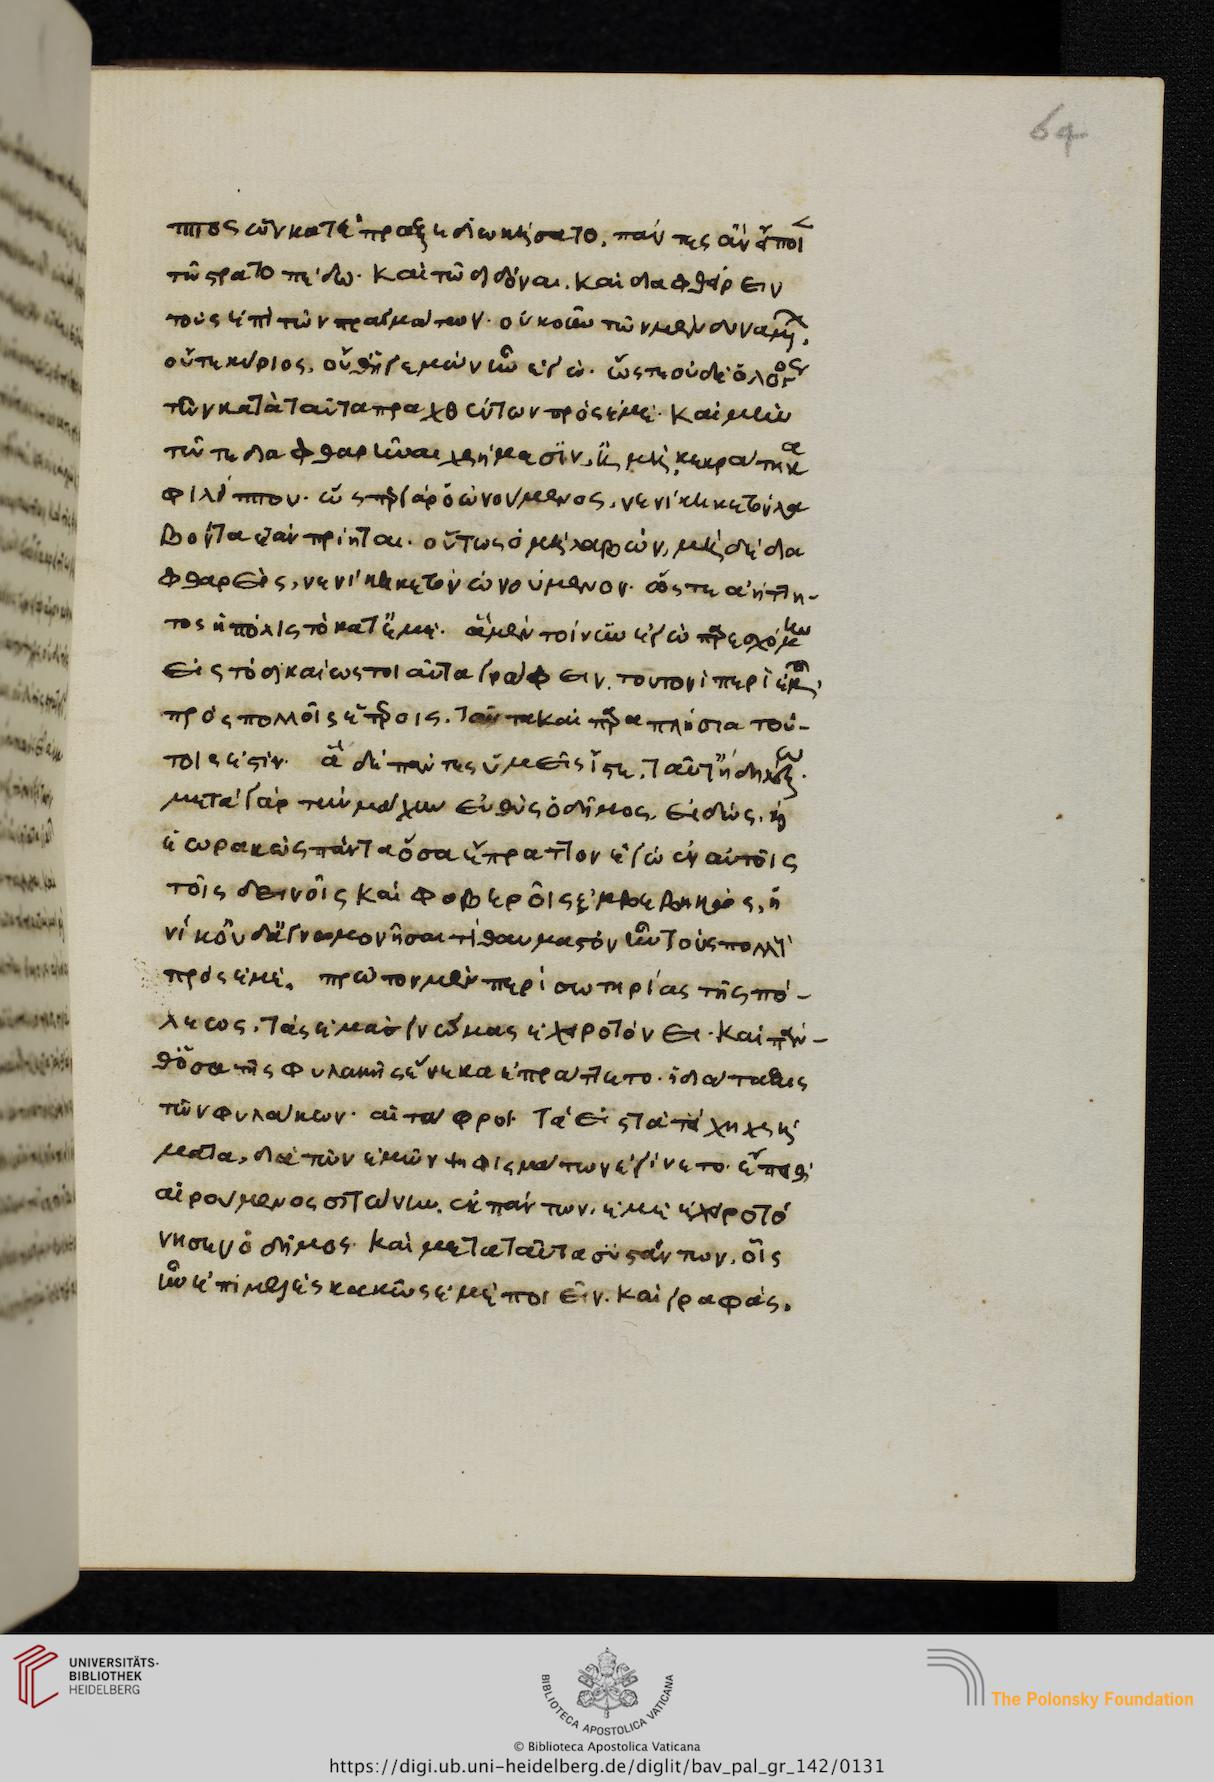 64
ππος ὧν κατέπραξε διωικήσατο, πάντες ἂν εἴποι
τῶ στρατοπέδω· καὶ τῶ διδόναι, καὶ διαφθείρειν
τοὺς ἐπὶ τῶν πραγμάτων· οὐκοῦν τῶν μὲν δυνάμεων,
οὔτε κύριος, οὔθ' ἡγεμὼν ἦν ἐγώ· ὥστε οὐδὲ ὁ λόγος
τῶν κατὰ ταῦτα πραχθέντων πρὸς ἐμέ· καὶ μὴν
τῶ τε διαφθαρῆναι χρήμασιν, ἢ μὴ, κεκράτηκα
φιλίππου· ὥσπερ γὰρ ὁ ὠνούμενος, νενίκηκε τὸν λα
βόντα ἐὰν πρίηται· οὕτως ὁ μὴ λαβών, μὴδὲ δια
φθαρεὶς, νενίκηκε τὸν ὠνούμενον· ὥστε ἀήττη-
τος ἡ πόλις τὸ κατ' ἐμέ· ἃ μὲν τοίνυν ἐγὼ παρεσχόμην
εἰς τὸ δικαίως τοιαῦτα γράφειν, τουτονὶ περὶ ἐμοῦ,
πρὸς πολλοῖς ἑτέροις, ταῦτα καὶ παραπλήσια τού-
τοις ἐστίν· ἃ δὲ πάντες ὑμεῖς ἴστε, ταῦτ' ἤδη λέξω·
μετὰ γὰρ τὴν μάχην εὐθὺς ὁ δῆμος, εἰδώς, καὶ
ἑωρακὼς πάντα ὅσα ἔπραττον ἐγὼ ἐν αὐτοῖς
τοῖς δεινοῖς καὶ φοβεροῖς ἐμβεβηκὼς, ἡ
νίκ' οὐδ' ἀγνωμονῆσαι τὶ θαυμαστὸν ἦν τοὺς πολλοὺς
πρὸς ἐμέ, πρῶτον μὲν περὶ σωτηρίας τῆς πό-
λεως, τὰς ἐμὰς γνώμας ἐχειροτόνει· καὶ πάν-
θ' ὅσα τῆς φυλακῆς ἕνεκα ἐπράττετο· ἡ διάταξις
τῶν φυλάκων· αἱ τάφροι· τὰ εἰς τὰ τείχη χρή
ματα, διὰ τῶν ἐμῶν ψηφισμάτων ἐγίνετο· ἔπειθ'
αἱρούμενος σιτώνην, ἐκ πάντων, ἐμὲ ἐχειροτό
νησεν ὁ δῆμος· καὶ μετὰ ταῦτα συστάντων, οἷς
ἦν ἐπιμελὲς κακῶς ἐμὲ ποιεῖν, καὶ γραφάς,
UNIVERSITÄTS-
BIBLIOTHEK
HEIDELBERG
BIBLIOTECA APOSTOLICA VATICANA
© Biblioteca Apostolica Vaticana
The Polonsky Foundation
https://digi.ub.uni-heidelberg.de/diglit/bav_pal_gr_142/0131